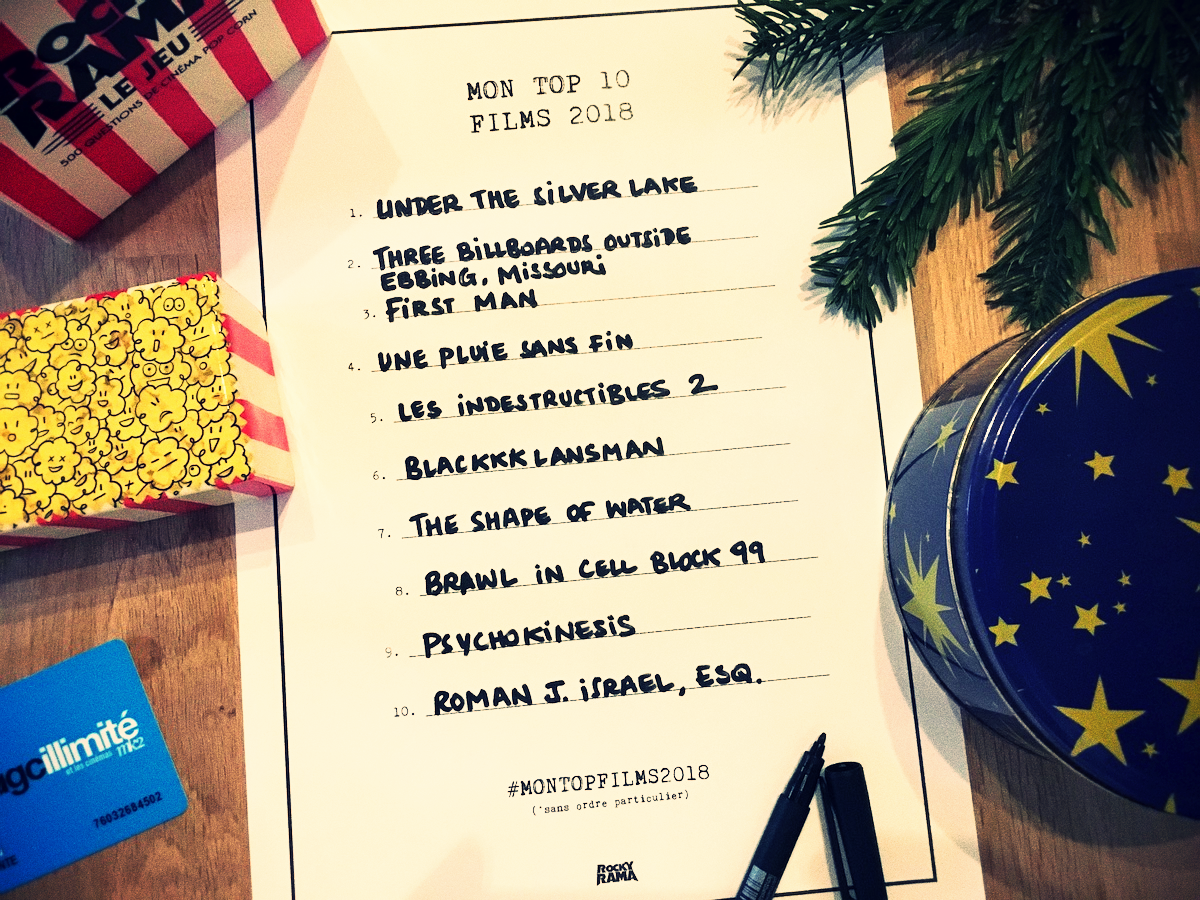 ROCKY
RAMA
LE JEU
500 QUESTIONS DE CINÉMA POP CORN
MON TOP 10
FILMS 2018
1. UNDER THE SILVER LAKE
2. THREE BILLBOARDS OUTSIDE
EBBING, MISSOURI
3. FIRST MAN
4. UNE PLUIE SANS FIN
5. LES INDESTRUCTIBLES 2
6. BLACKKKLANSMAN
7. THE SHAPE OF WATER
8. BRAWL IN CELL BLOCK 99
9. PSYCHOKINESIS
10. ROMAN J. ISRAEL, ESQ.
ugcillimité
et les cinémas mk2
76032684502
#MONTOPFILMS2018
(*sans ordre particulier)
ROCKY
RAMA